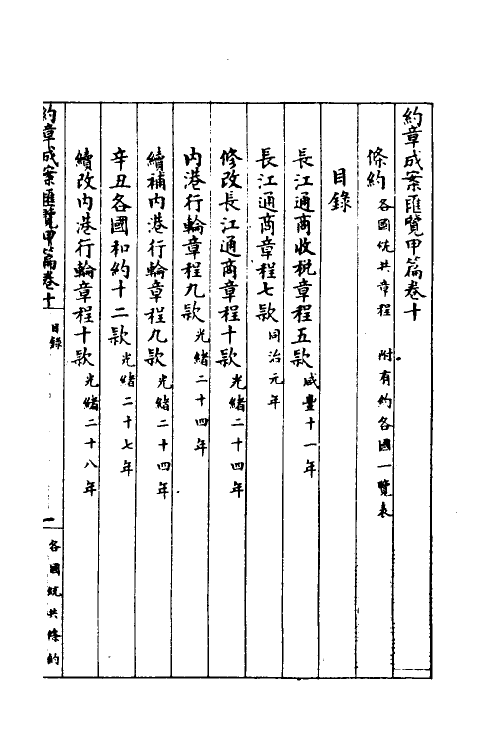 約章成案匯覽甲篇卷十
條約 各國統共章程 附有約各國一覽表
目錄
長江通商收稅章程五款 咸豐十一年
長江通商章程七款 同治元年
修改長江通商章程十款 光緒二十四年
內港行輪章程九款 光緒二十四年
續補內港行輪章程九款 光緒二十四年
辛丑各國和約十二款 光緒二十七年
續改內港行輪章程十款 光緒二十八年
約章成案匯覽甲篇卷十 目錄 一 各國統共條約